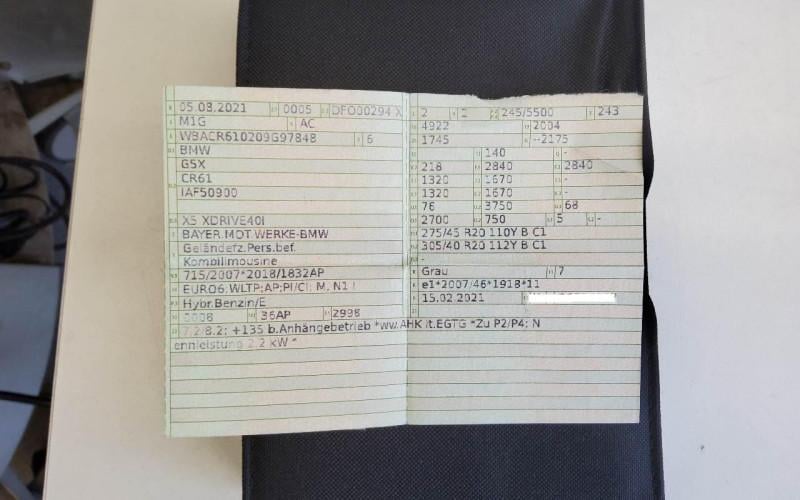 05.08.2021 0005 DF000294 X
M1G AC
WBACR610209G97848 6
BMW
G5X
CR61
IAF50900
X5 XDRIVE40I
BAYER.MOT.WERKE-BMW
Geländefz.Pers.bef.
Kombilimousine
715/2007*2018/1832AP
EURO6;WLTP;AP;PI/CI; M, N1 I
Hybr.Benzin/E
0008 36AP 2998
7.2/8.2: +135 b.Anhängebetrieb *ww.AHK lt.EGTG *Zu P2/P4: N
ennleistung 2,2 kW *
2 2 245/5500 243
4922 2004
1745 --2175
140 -
218 2840 2840
1320 1670 -
1320 1670 -
76 3750 68
2700 750 5 -
275/45 R20 110Y B C1
305/40 R20 112Y B C1
-
Grau 7
e1*2007/46*1918*11
15.02.2021